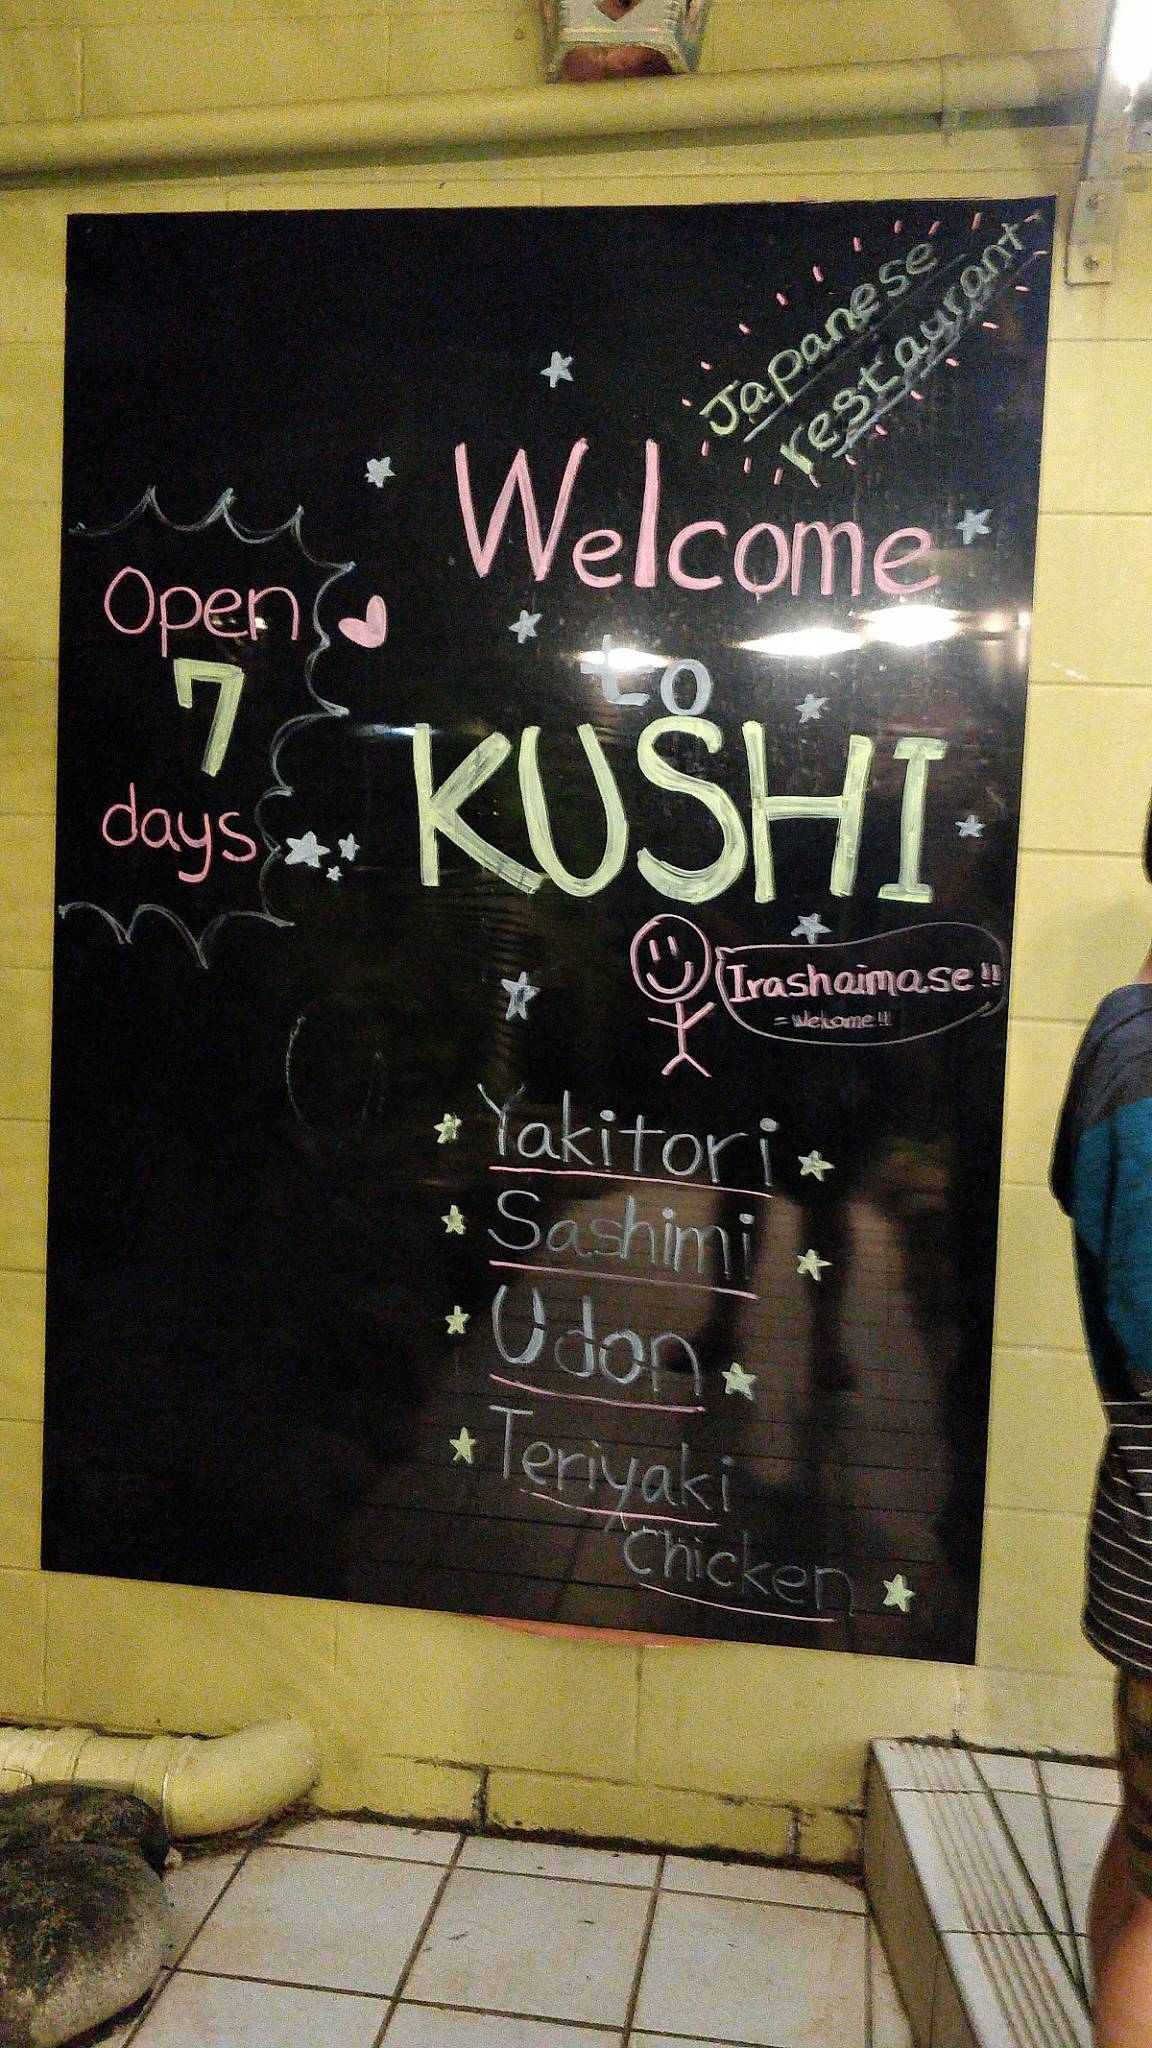 Japanese
restaurant
Welcome
to
KUSHI
Open
7
days
Irashaimase!!
=Welcome!!
Yakitori
Sashimi
Udon
Teriyaki
Chicken